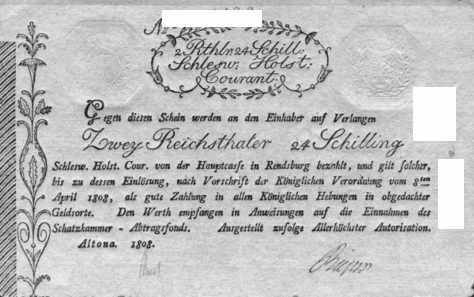 No
2 Rthlr. 24 Schill.
Schlesw: Holst:
Courant.
Gegen diesen Schein werden an den Einhaber auf Verlangen
Zwey Reichsthaler 24 Schilling
Schlesw. Holst. Cour. von der Hauptcasse in Rendsburg bezahlt, und gilt solcher,
bis zu dessen Einlösung, nach Vorschrift der Königlichen Verordnung vom 8ten
April 1808, als gute Zahlung in allen Königlichen Hebungen in obgedachter
Geldsorte. Den Werth empfangen in Anweisungen auf die Einnahmen des
Schatzkammer - Abtragsfonds. Ausgestellt zufolge Allerhöchster Autorisation.
Altona. 1808.